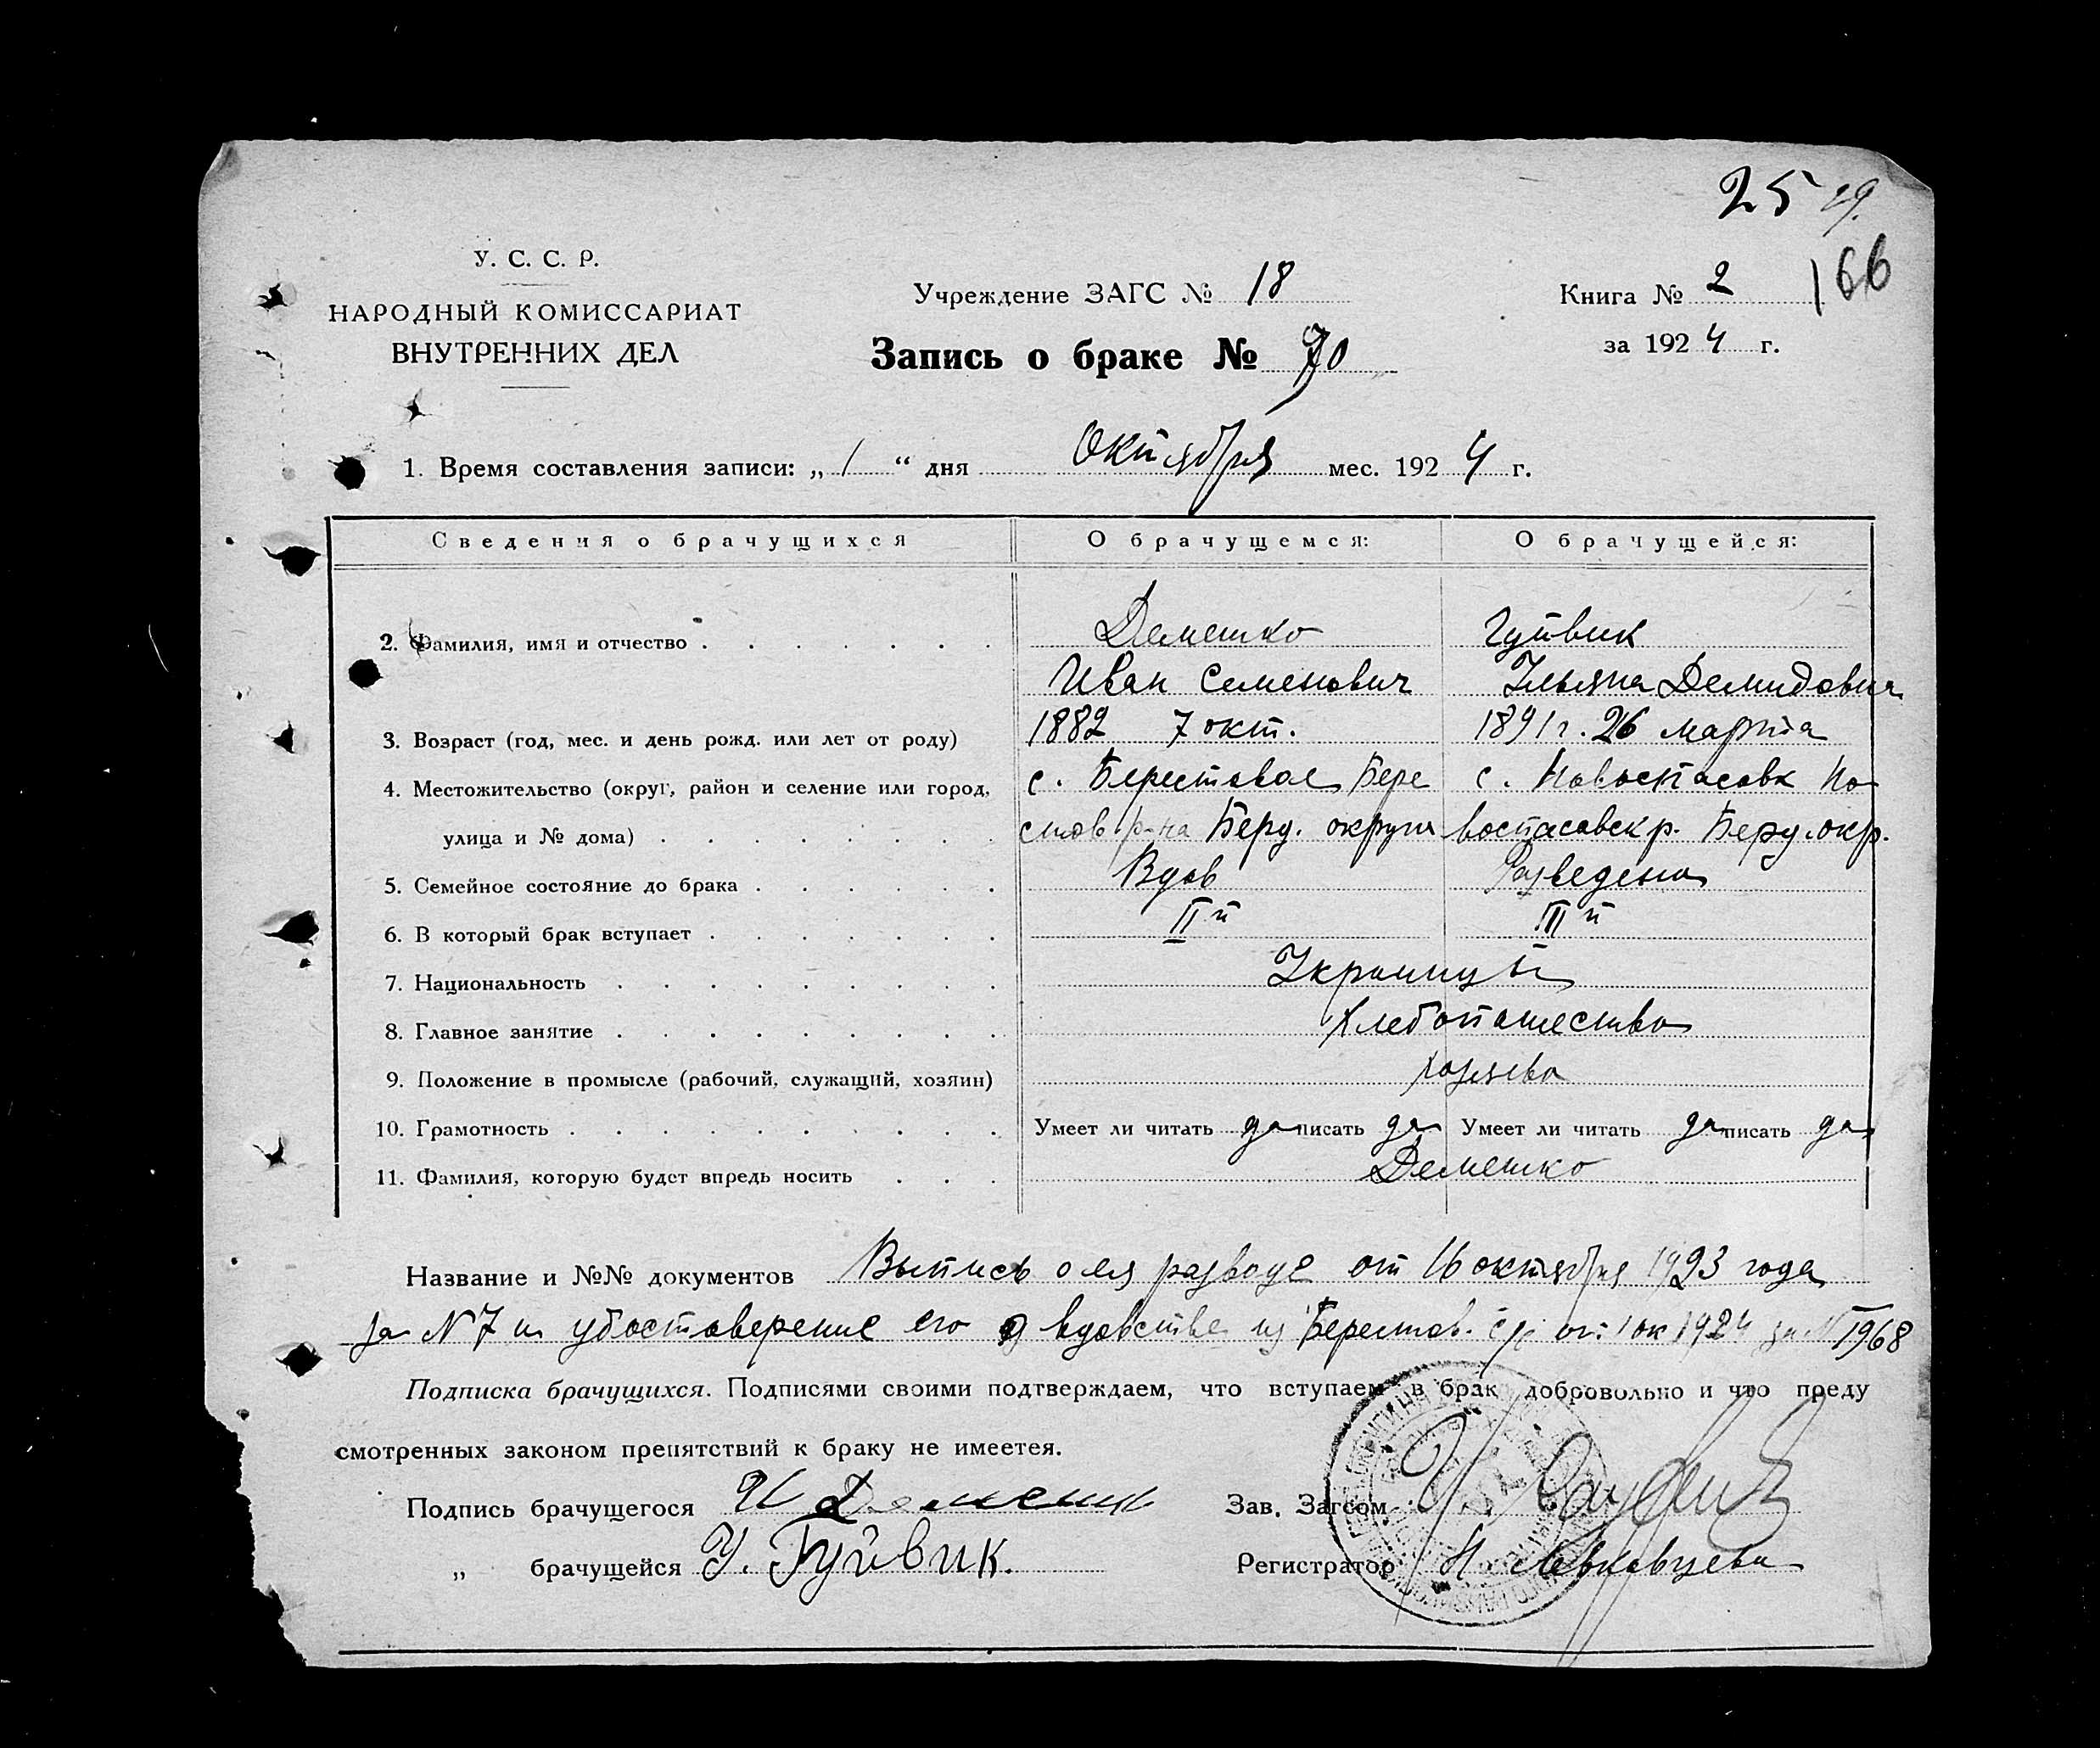 25 29.
У. С. С. Р.
166
НАРОДНЫЙ КОМИССАРИАТ
ВНУТРЕННИХ ДЕЛ
Учреждение ЗАГС № 18
Книга № 2
Запись о браке № 70
за 1924 г.
1. Время составления записи: „ 1 “ дня Октября мес. 1924 г.
Сведения о брачущихся О брачущемся: О брачущейся:
2. Фамилия, имя и отчество . . . . . . . Демешко Гуйвик
Иван Семенович Ульяна Демидович
3. Возраст (год, мес. и день рожд. или лет от роду) 1882 7 окт. 1891 г. 26 марта
4. Местожительство (округ, район и селение или город, с. Берестовое Бере с. Новоспасовк Но
улица и № дома) . . . . . . . . стов р-на Берд. округа воспасовск р. Берд. окр.
5. Семейное состояние до брака . . . . . . Вдов Разведена
6. В который брак вступает . . . . . . . II й III й
7. Национальность . . . . . . . . . Украинцы
8. Главное занятие . . . . . . . . . Хлебопашество
9. Положение в промысле (рабочий, служащий, хозяин) хозяева
10. Грамотность . . . . . . . . . . Умеет ли читать да писать да Умеет ли читать да писать да
11. Фамилия, которую будет впредь носить . . . Демешко
Название и №№ документов Выпись о ея разводе от 16 октября 1923 года
за N 7 и удостоверение его о вдовстве из Берестов. от 1 ок 1924 за N 1968
Подписка брачущихся. Подписями своими подтверждаем, что вступаем в брак добровольно и что преду
смотренных законом препятствий к браку не имеетея.
Подпись брачущегося И Демешк Зав. Загсом
„ брачущейся У. Гуйвик. Регистратор Н.